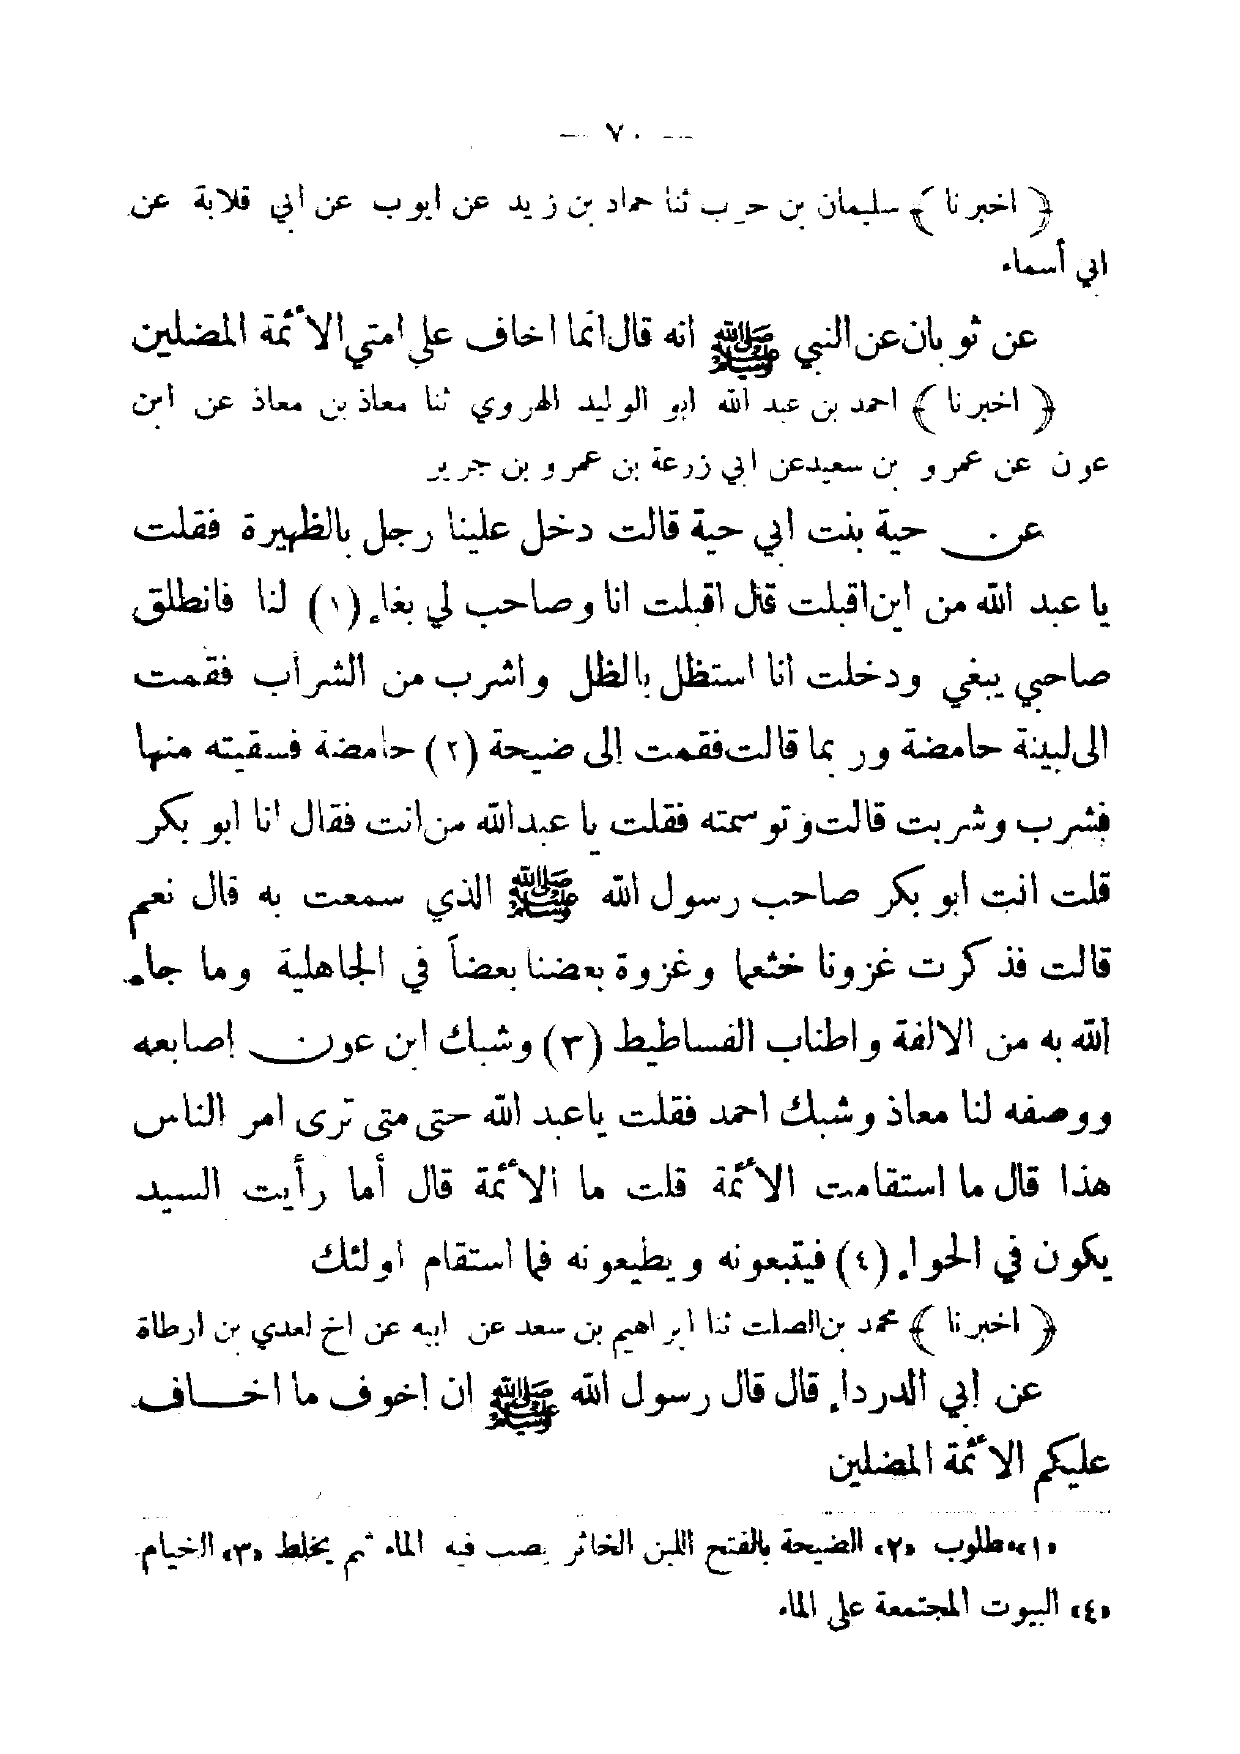 — ٧٠ —
﴿ اخبرنا ﴾ سليمان بن حرب ثنا حماد بن زيد عن ايوب عن ابي قلابة عن
ابي أسماء
عن ثوبان عن النبي ﷺ انه قال انما اخاف على امتي الأئمة المضلين
﴿ اخبرنا ﴾ احمد بن عبد الله ابو الوليد الهروي ثنا معاذ بن معاذ عن ابن
عون عن عمرو بن سعيد عن ابي زرعة بن عمرو بن جرير
عن حية بنت ابي حية قالت دخل علينا رجل بالظهيرة فقلت
يا عبد الله من اين اقبلت قال اقبلت انا وصاحب لي بغاء (١) لنا فانطلق
صاحبي يبغي ودخلت انا استظل بالظل واشرب من الشراب فقمت
الى لبينة حامضة وربما قالت فقمت الى ضيحة (٢) حامضة فسقيته منها
فشرب وشربت قالت وتوسمته فقلت يا عبد الله من انت فقال انا ابو بكر
قلت انت ابو بكر صاحب رسول الله ﷺ الذي سمعت به قال نعم
قالت فذكرت غزونا خثعما وغزوة بعضنا بعضاً في الجاهلية وما جاء
الله به من الالفة واطناب الفساطيط (٣) وشبك ابن عون اصابعه
ووصفه لنا معاذ وشبك احمد فقلت ياعبد الله حتى متى ترى امر الناس
هذا قال ما استقامت الأئمة قلت ما الأئمة قال أما رأيت السيد
يكون في الحواء (٤) فيتبعونه ويطيعونه فما استقام اولئك
﴿ اخبرنا ﴾ محمد بن الصلت ثنا ابراهيم بن سعد عن ابيه عن اخ لعدي بن ارطاة
عن ابي الدرداء قال قال رسول الله ﷺ ان اخوف ما اخاف
عليكم الأئمة المضلين
«١» طلوب «٢» الضيحة بالفتح اللبن الخاثر يصب فيه الماء ثم يخلط «٣» الخيام
«٤» البيوت المجتمعة على الماء